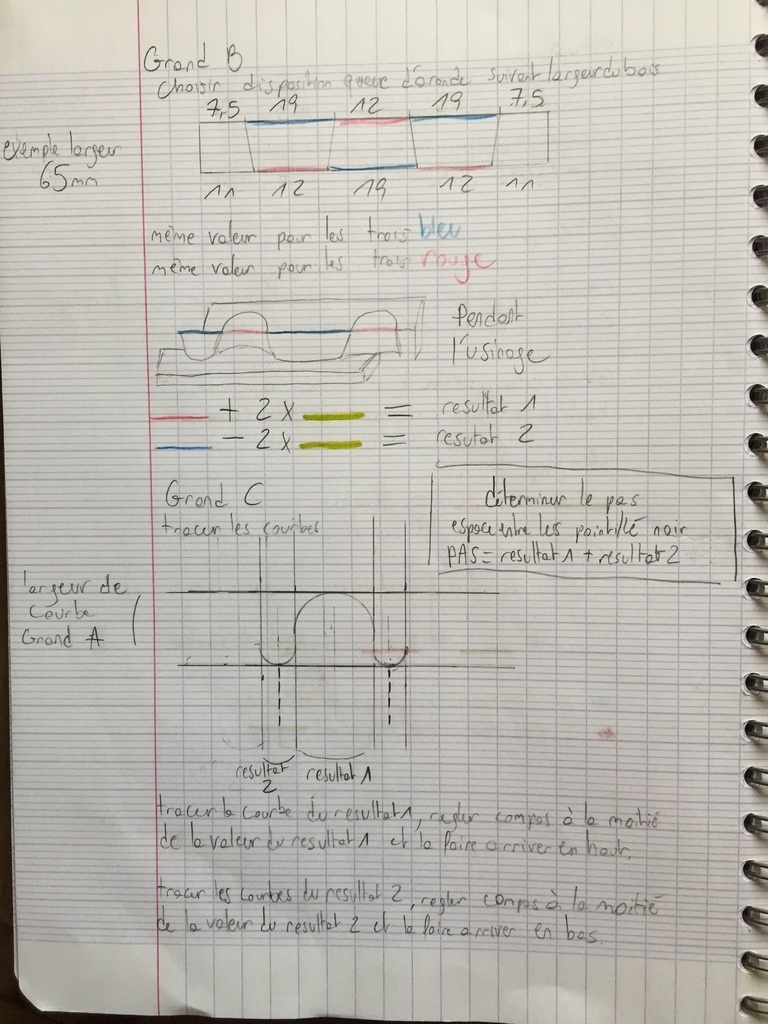 Grand B
Choisir disposition queue d'aronde suivant largeur du bois
7,5 19 12 19 7,5
exemple largeur
65mm
11 12 19 12 11
même valeur pour les trois bleu
même valeur pour les trois rouge
Pendant
l'usinage
+ 2 x =
resultat 1
- 2 x =
resutat 2
Grand C
tracer les courbes
déterminer le pas
espace entre les pointillé noir
PAS = resultat 1 + resultat 2
largeur de
courbe
Grand A
resultat
2
resultat 1
tracer la courbe du resultat 1, regler compas à la moitié
de la valeur du resultat 1 et la faire arriver en haut.
tracer les courbes du resultat 2, regler compas à la moitié
de la valeur du resultat 2 et la faire arriver en bas.